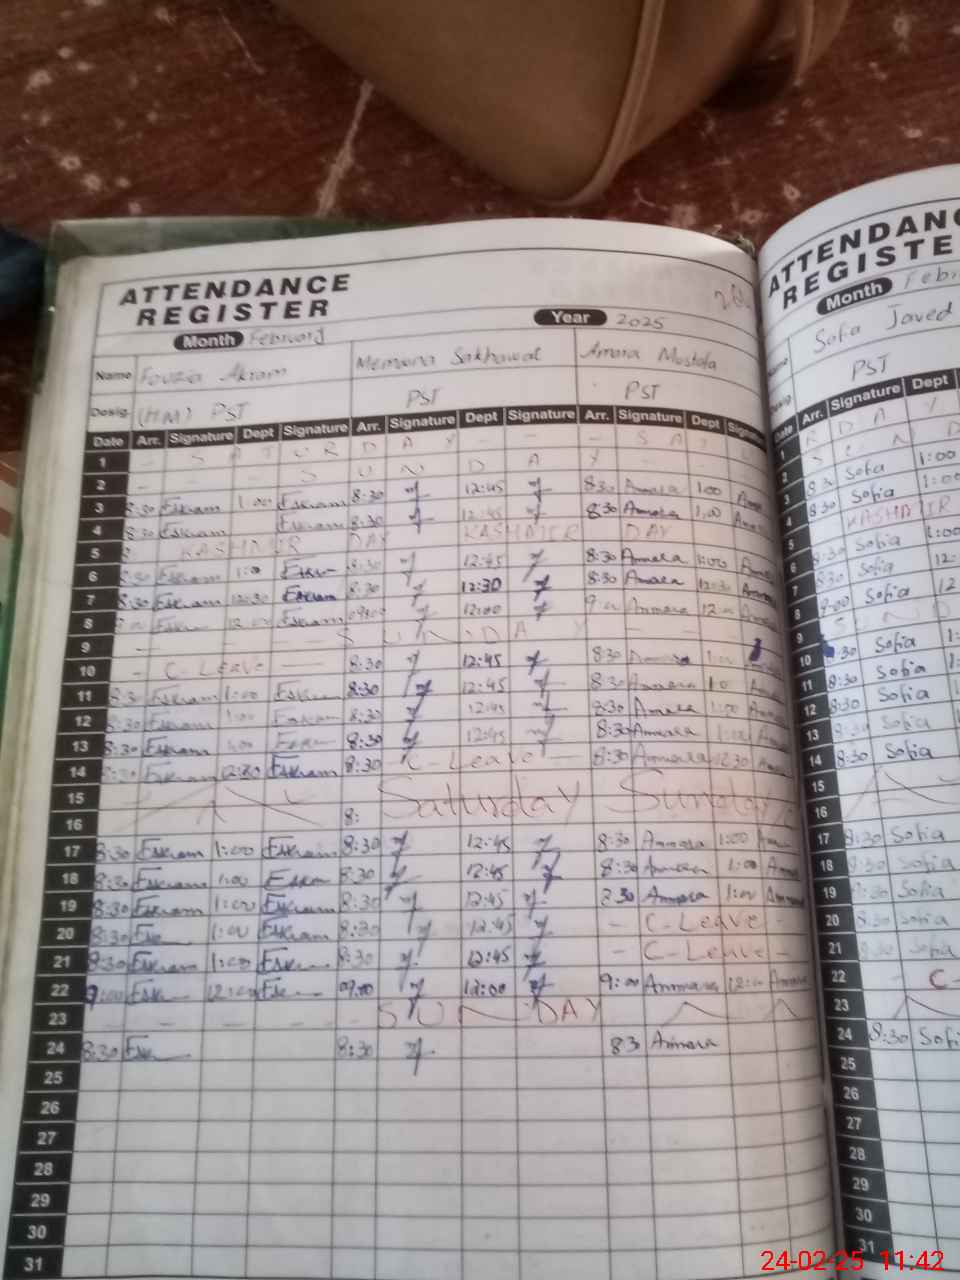 ATTENDANCE
REGISTER
Month February Year 2025
Name Fouzia Akram Memona Sakhawat Amara Mustafa
Desig. (HM) PST PST PST
Date Arr. Signature Dept Signature Arr. Signature Dept Signature Arr. Signature Dept Signature
1 - S A T U R D A Y - - - S A T
2 - - S U N D A Y - -
3 8:30 Eskram 1:00 Eskram 8:30 12:45 8:30 Amara 1:00
4 8:30 Eskram Eskram 8:30 12:45 8:30 Amara 1:00
5 KASHMIR DAY KASHMIR DAY
6 8:30 Eskram 1:00 8:30 12:45 8:30 Ammara 1:00
7 8:30 Eskram 12:30 Eskram 8:30 12:30 8:30 Amara 12:30
8 9:00 12:00 09:00 12:00 9:00 Ammara 12:00
9 - - - S U N D A Y - -
10 - C-Leave - 8:30 12:45 8:30 Ammara 1:00
11 8:30 Eskram 1:00 8:30 12:45 8:30 Ammara 1:0
12 8:30 Eskram 1:00 8:30 12:45 8:30 Amara 1:00
13 8:30 Eskram 1:00 8:30 12:45 8:30 Ammara 1:00
14 8:30 Eskram 12:30 Eskram 8:30 C-Leave - 8:30 Ammara 12:30
15 Saturday Sunday
16 8:
17 8:30 Eskram 1:00 Eskram 8:30 12:45 8:30 Ammara 1:00
18 8:30 Eskram 1:00 8:30 12:45 8:30 Ammara 1:00
19 8:30 Eskram 1:00 Eskram 8:30 12:45 8:30 Ammara 1:00
20 8:30 1:00 Eskram 8:30 12:45 - C-Leave -
21 8:30 Eskram 1:00 8:30 12:45 - C-Leave -
22 9:00 12:00 09:00 12:00 9:00 Ammara 12:00
23 - - - - SUNDAY
24 8:30 8:30 83 Ammara
25
26
27
28
29
30
31
ATTENDAN
REGISTE
Month Febr
Sofia Javed
PST
Date Arr. Signature Dept
1 R D A Y
2 S U N D
3 8:30 Sofia 1:00
4 8:30 Sofia 1:00
5 KASHMIR
6 8:30 Sofia 1:00
7 8:30 Sofia 12:
8 9:00 Sofia 12
9 S U N D
10 8:30 Sofia 1:
11 8:30 Sofia 1:
12 8:30 Sofia 1:
13 8:30 Sofia 1:
14 8:30 Sofia
15
16
17 8:30 Sofia
18 8:30 Sofia
19 8:30 Sofia
20 8:30 Sofia
21 8:30 Sofia
22 - C-
23
24 8:30 Sofi
25
26
27
28
29
30
31
24-02-25 11:42